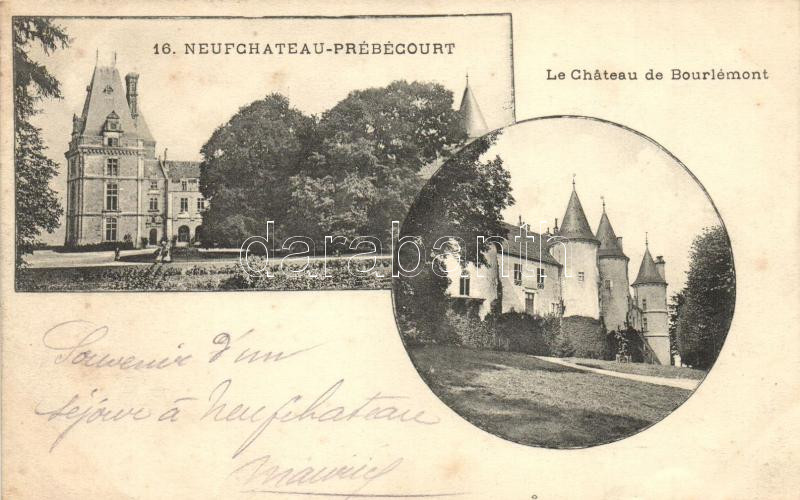 16. NEUFCHATEAU-PRÉBÉCOURT
Le Château de Bourlémont
darabanth.com
Souvenir d'un
séjour à Neufchateau
Maurice